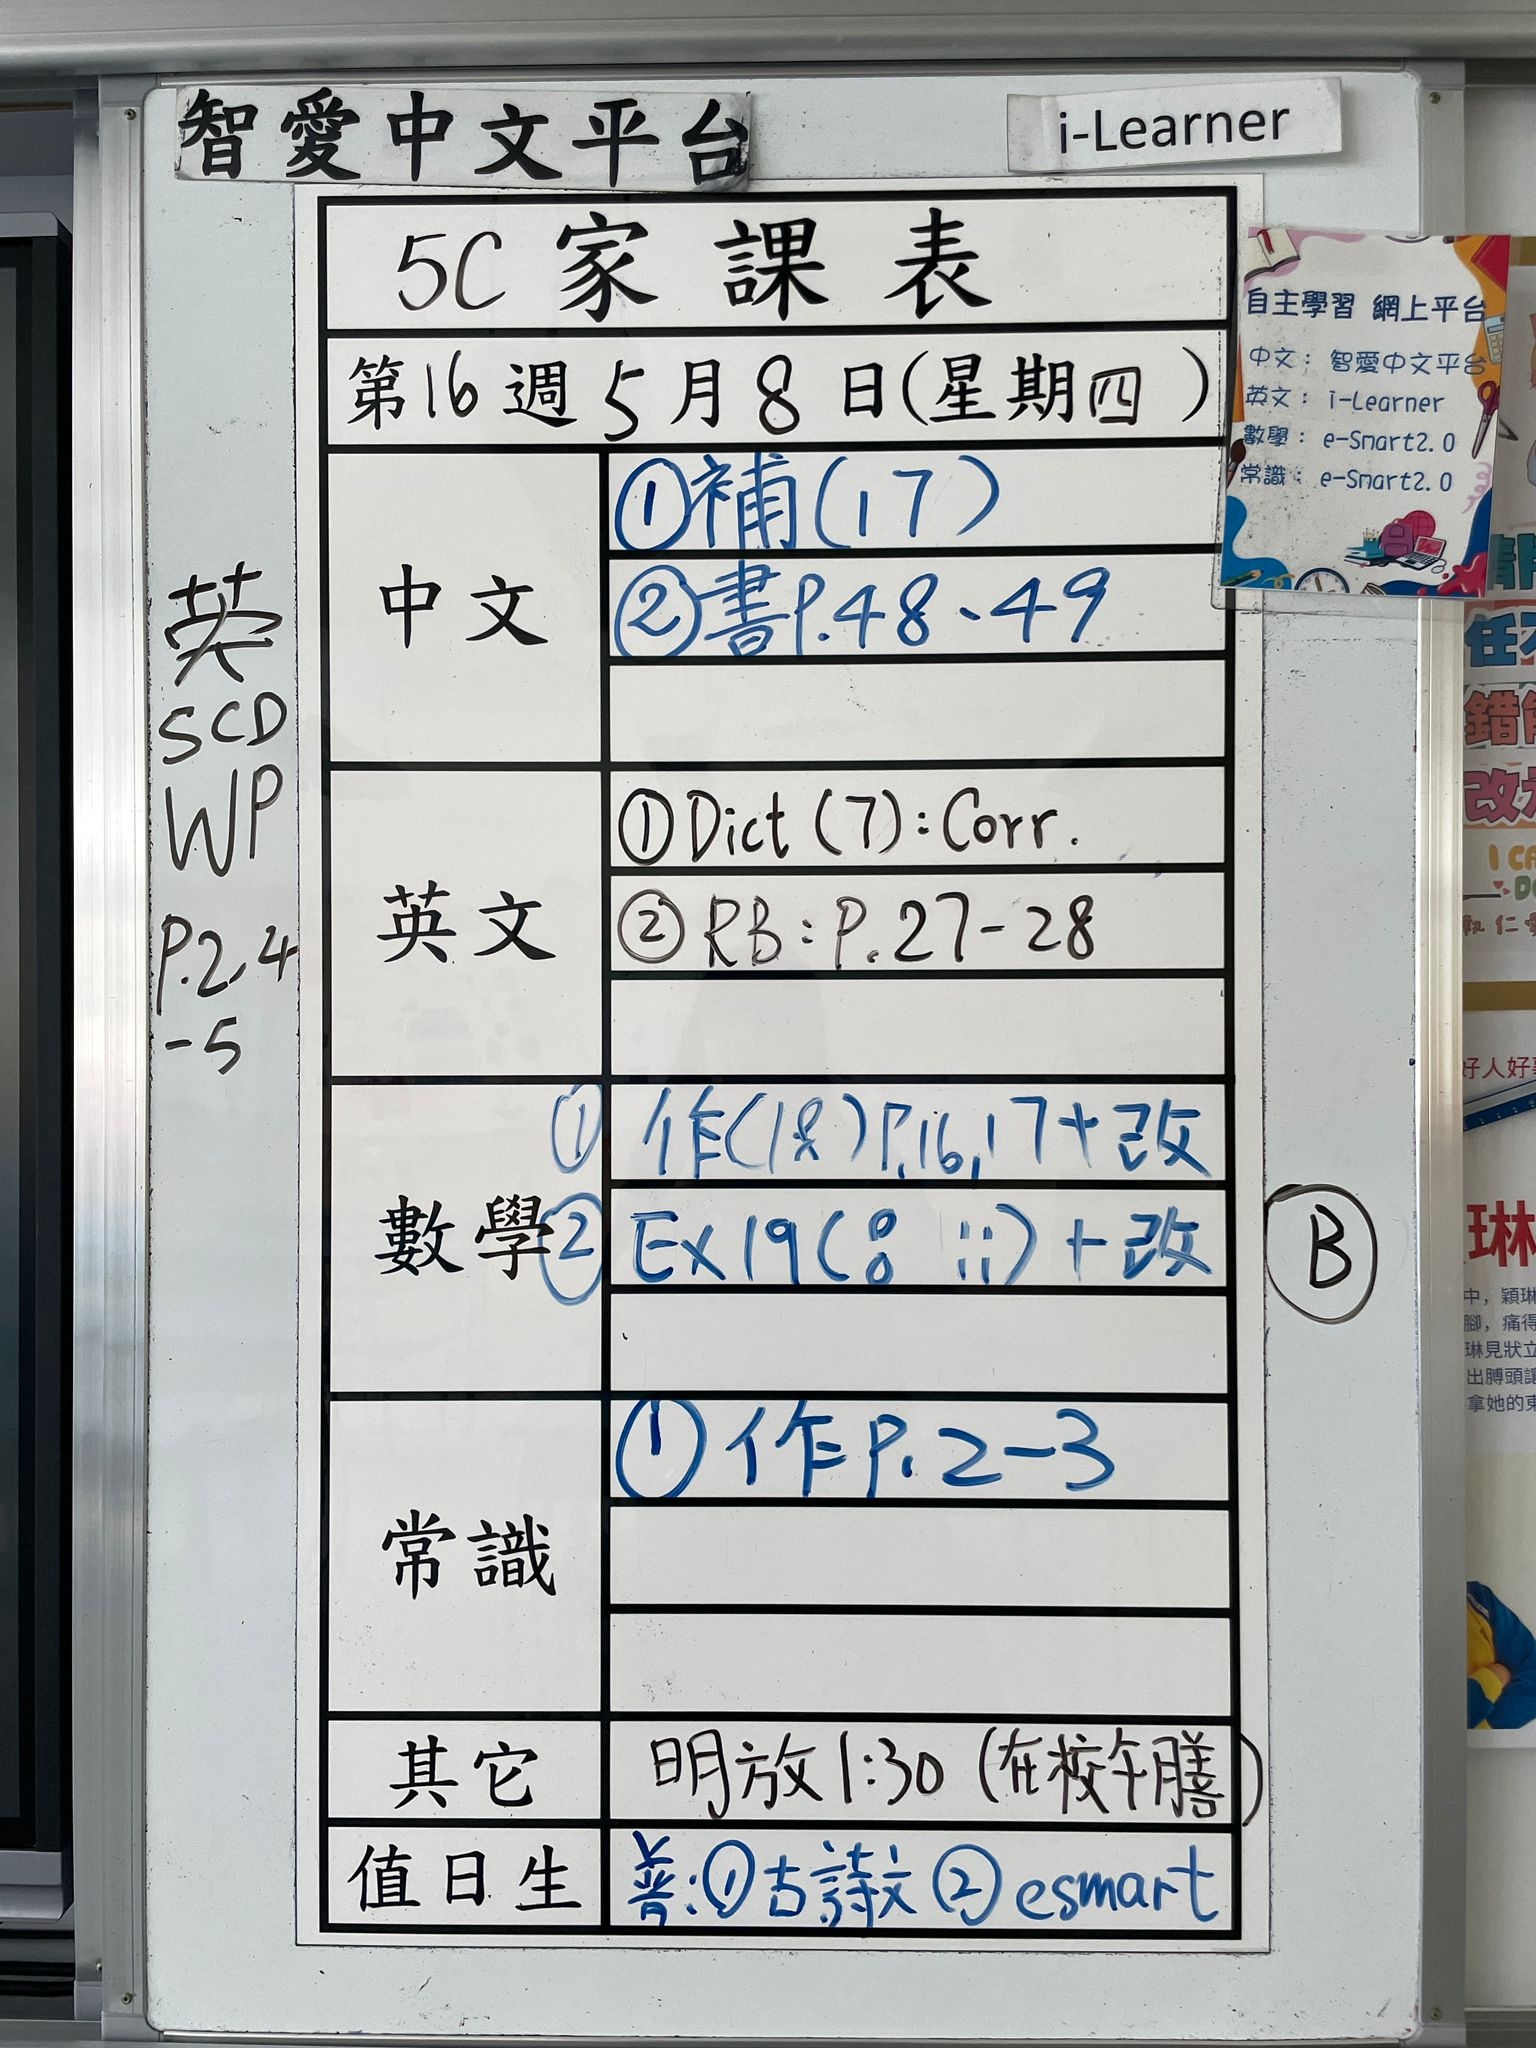 智愛中文平台
i-Learner
5C 家課表
第16週5月8日(星期四)
中文
①補(17)
②書P.48、49
英文
①Dict(7):Corr.
②RB:P.27-28
數學
① 作(18)P.16,17+改
② Ex19(8 ii)+改
常識
①作P.2-3
其它
明放1:30(在校午膳)
值日生
普:①古詩文②esmart
英
SCD
WP
P.2,4
-5
B
自主學習 網上平台
中文:智愛中文平台
英文:i-Learner
數學:e-Smart2.0
常識:e-Smart2.0
任
錯
改
I CA
好人好
琳
中,穎琳
腳,痛得
琳見狀立
出膊頭讓
拿她的東